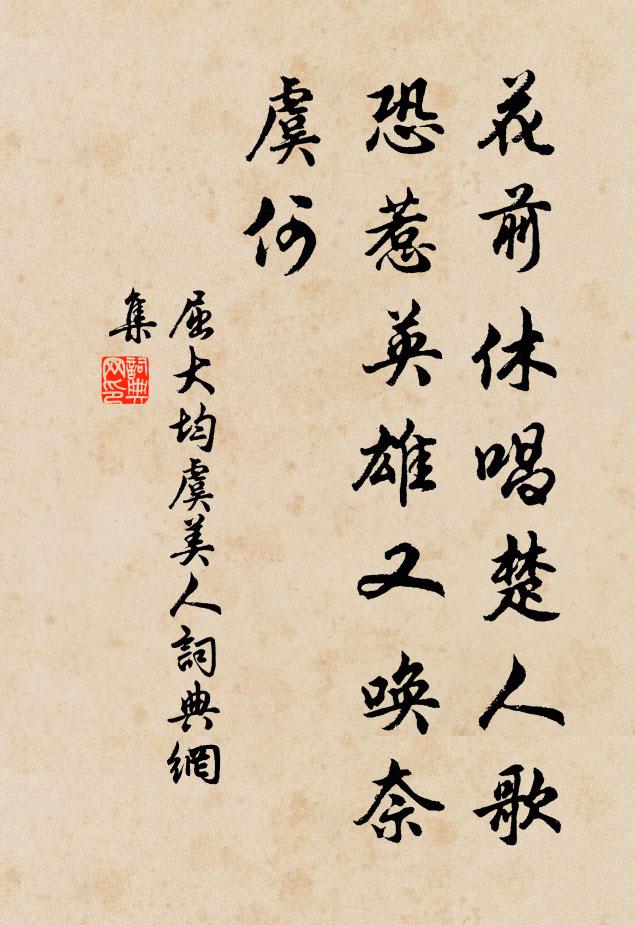 花前休唱楚人歌
恐惹英雄又唤奈
虞何
屈大均虞美人詞典網
集
詞典
网印